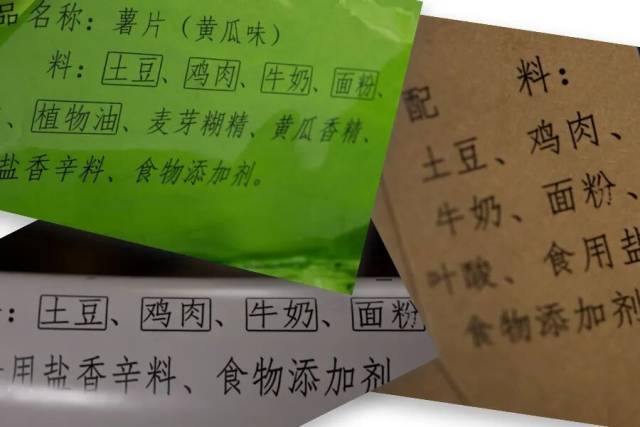 品名称：薯片（黄瓜味）
料：土豆、鸡肉、牛奶、面粉、
、植物油、麦芽糊精、黄瓜香精、
盐香辛料、食物添加剂。
配 料：
土豆、鸡肉、
牛奶、面粉、
叶酸、食用盐
食物添加剂
：土豆、鸡肉、牛奶、面粉
用盐香辛料、食物添加剂